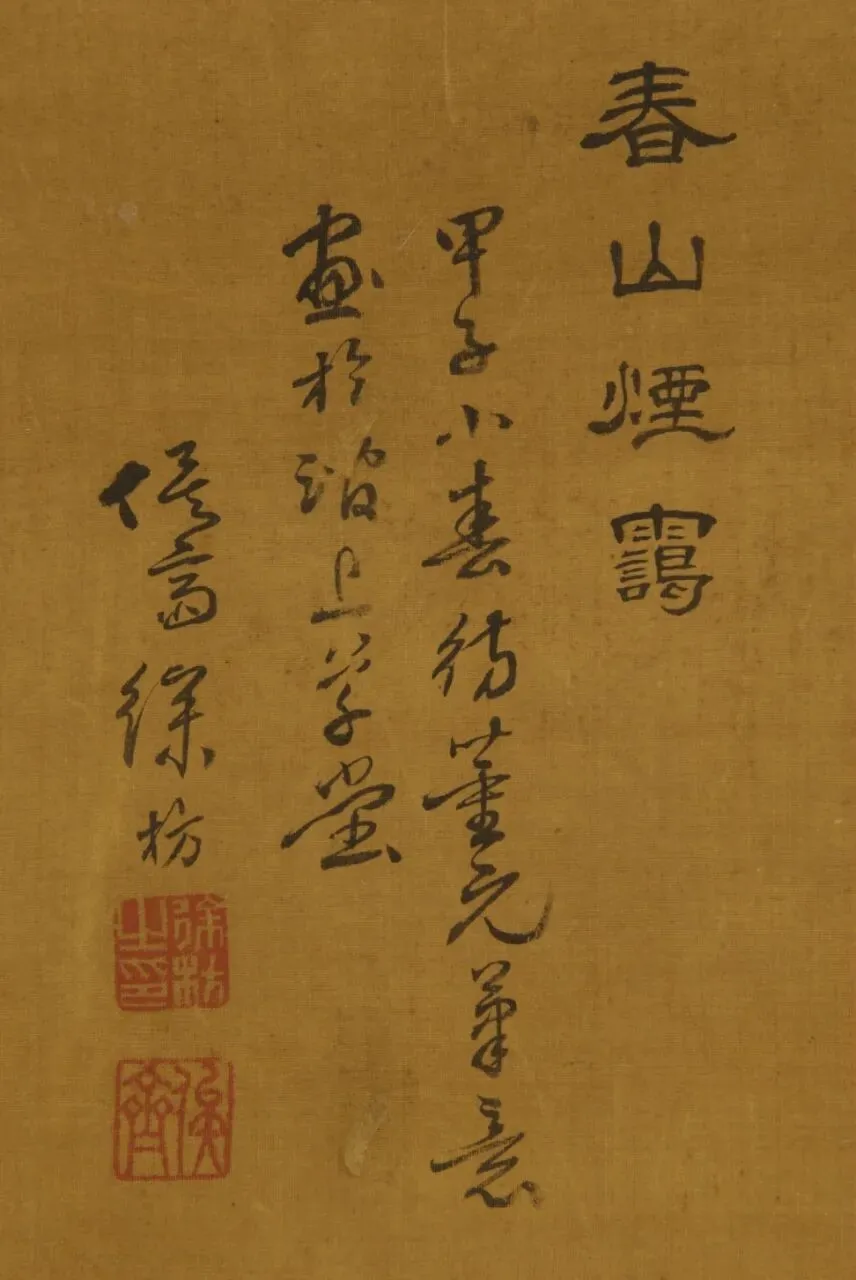 春山煙靄
甲子小春仿董元筆意
畫於澗上草堂
俟齋徐枋
徐枋之印
俟齋